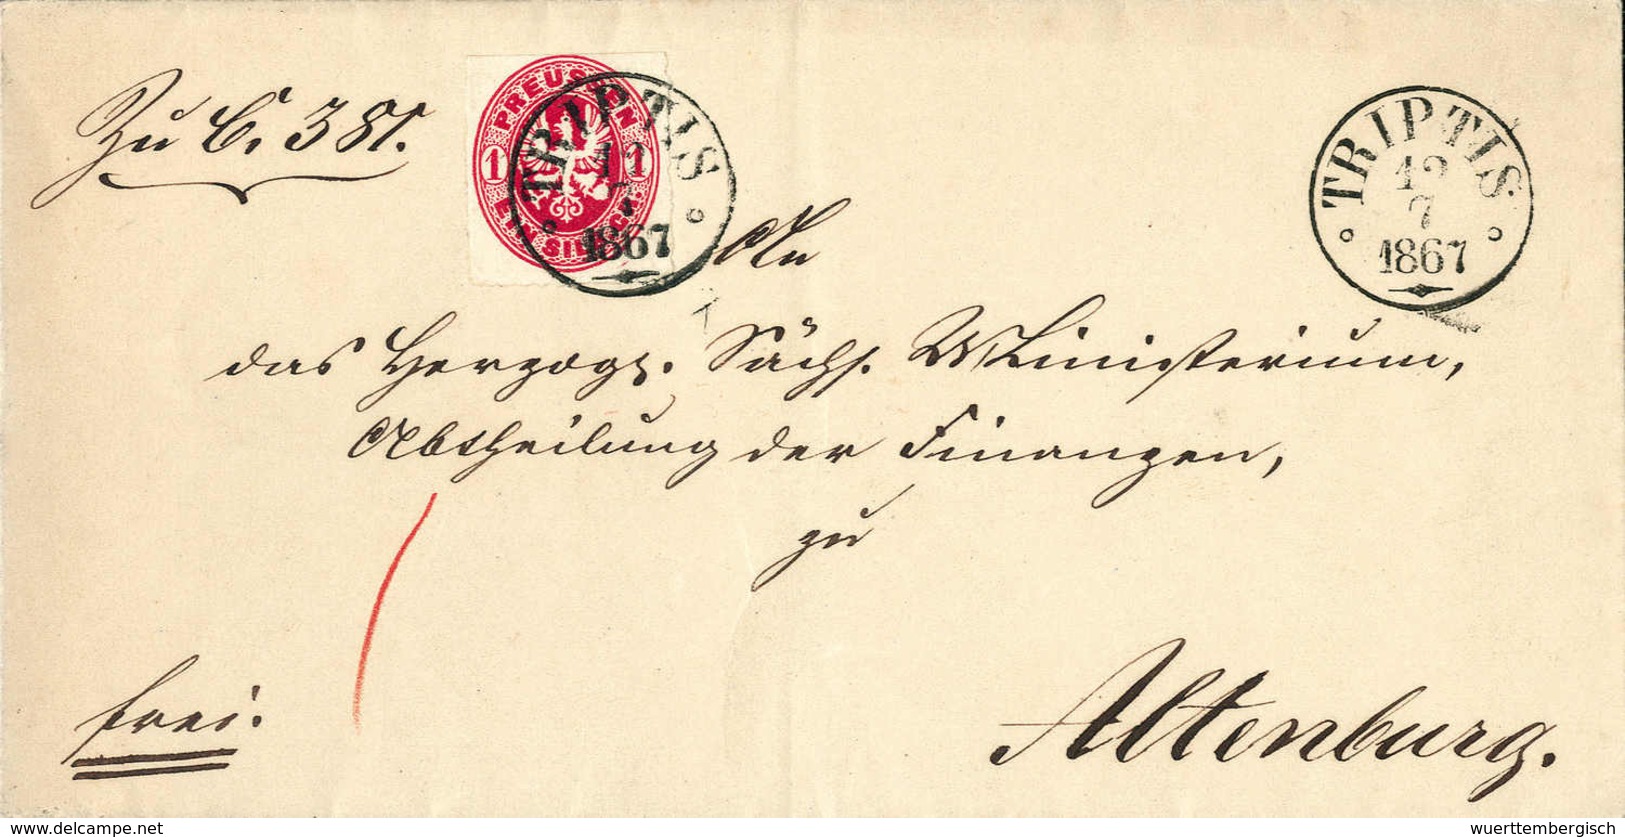 Zu C. 381.
PREUSSEN
1 1
EIN SILB.GR.
TRIPTIS
7
1867
TRIPTIS
12
7
1867
An
das Herzogl. Sächs. Ministerium,
Abtheilung der Finanzen,
zu
Altenburg.
frei.
delcampe.net
wuerttembergisch